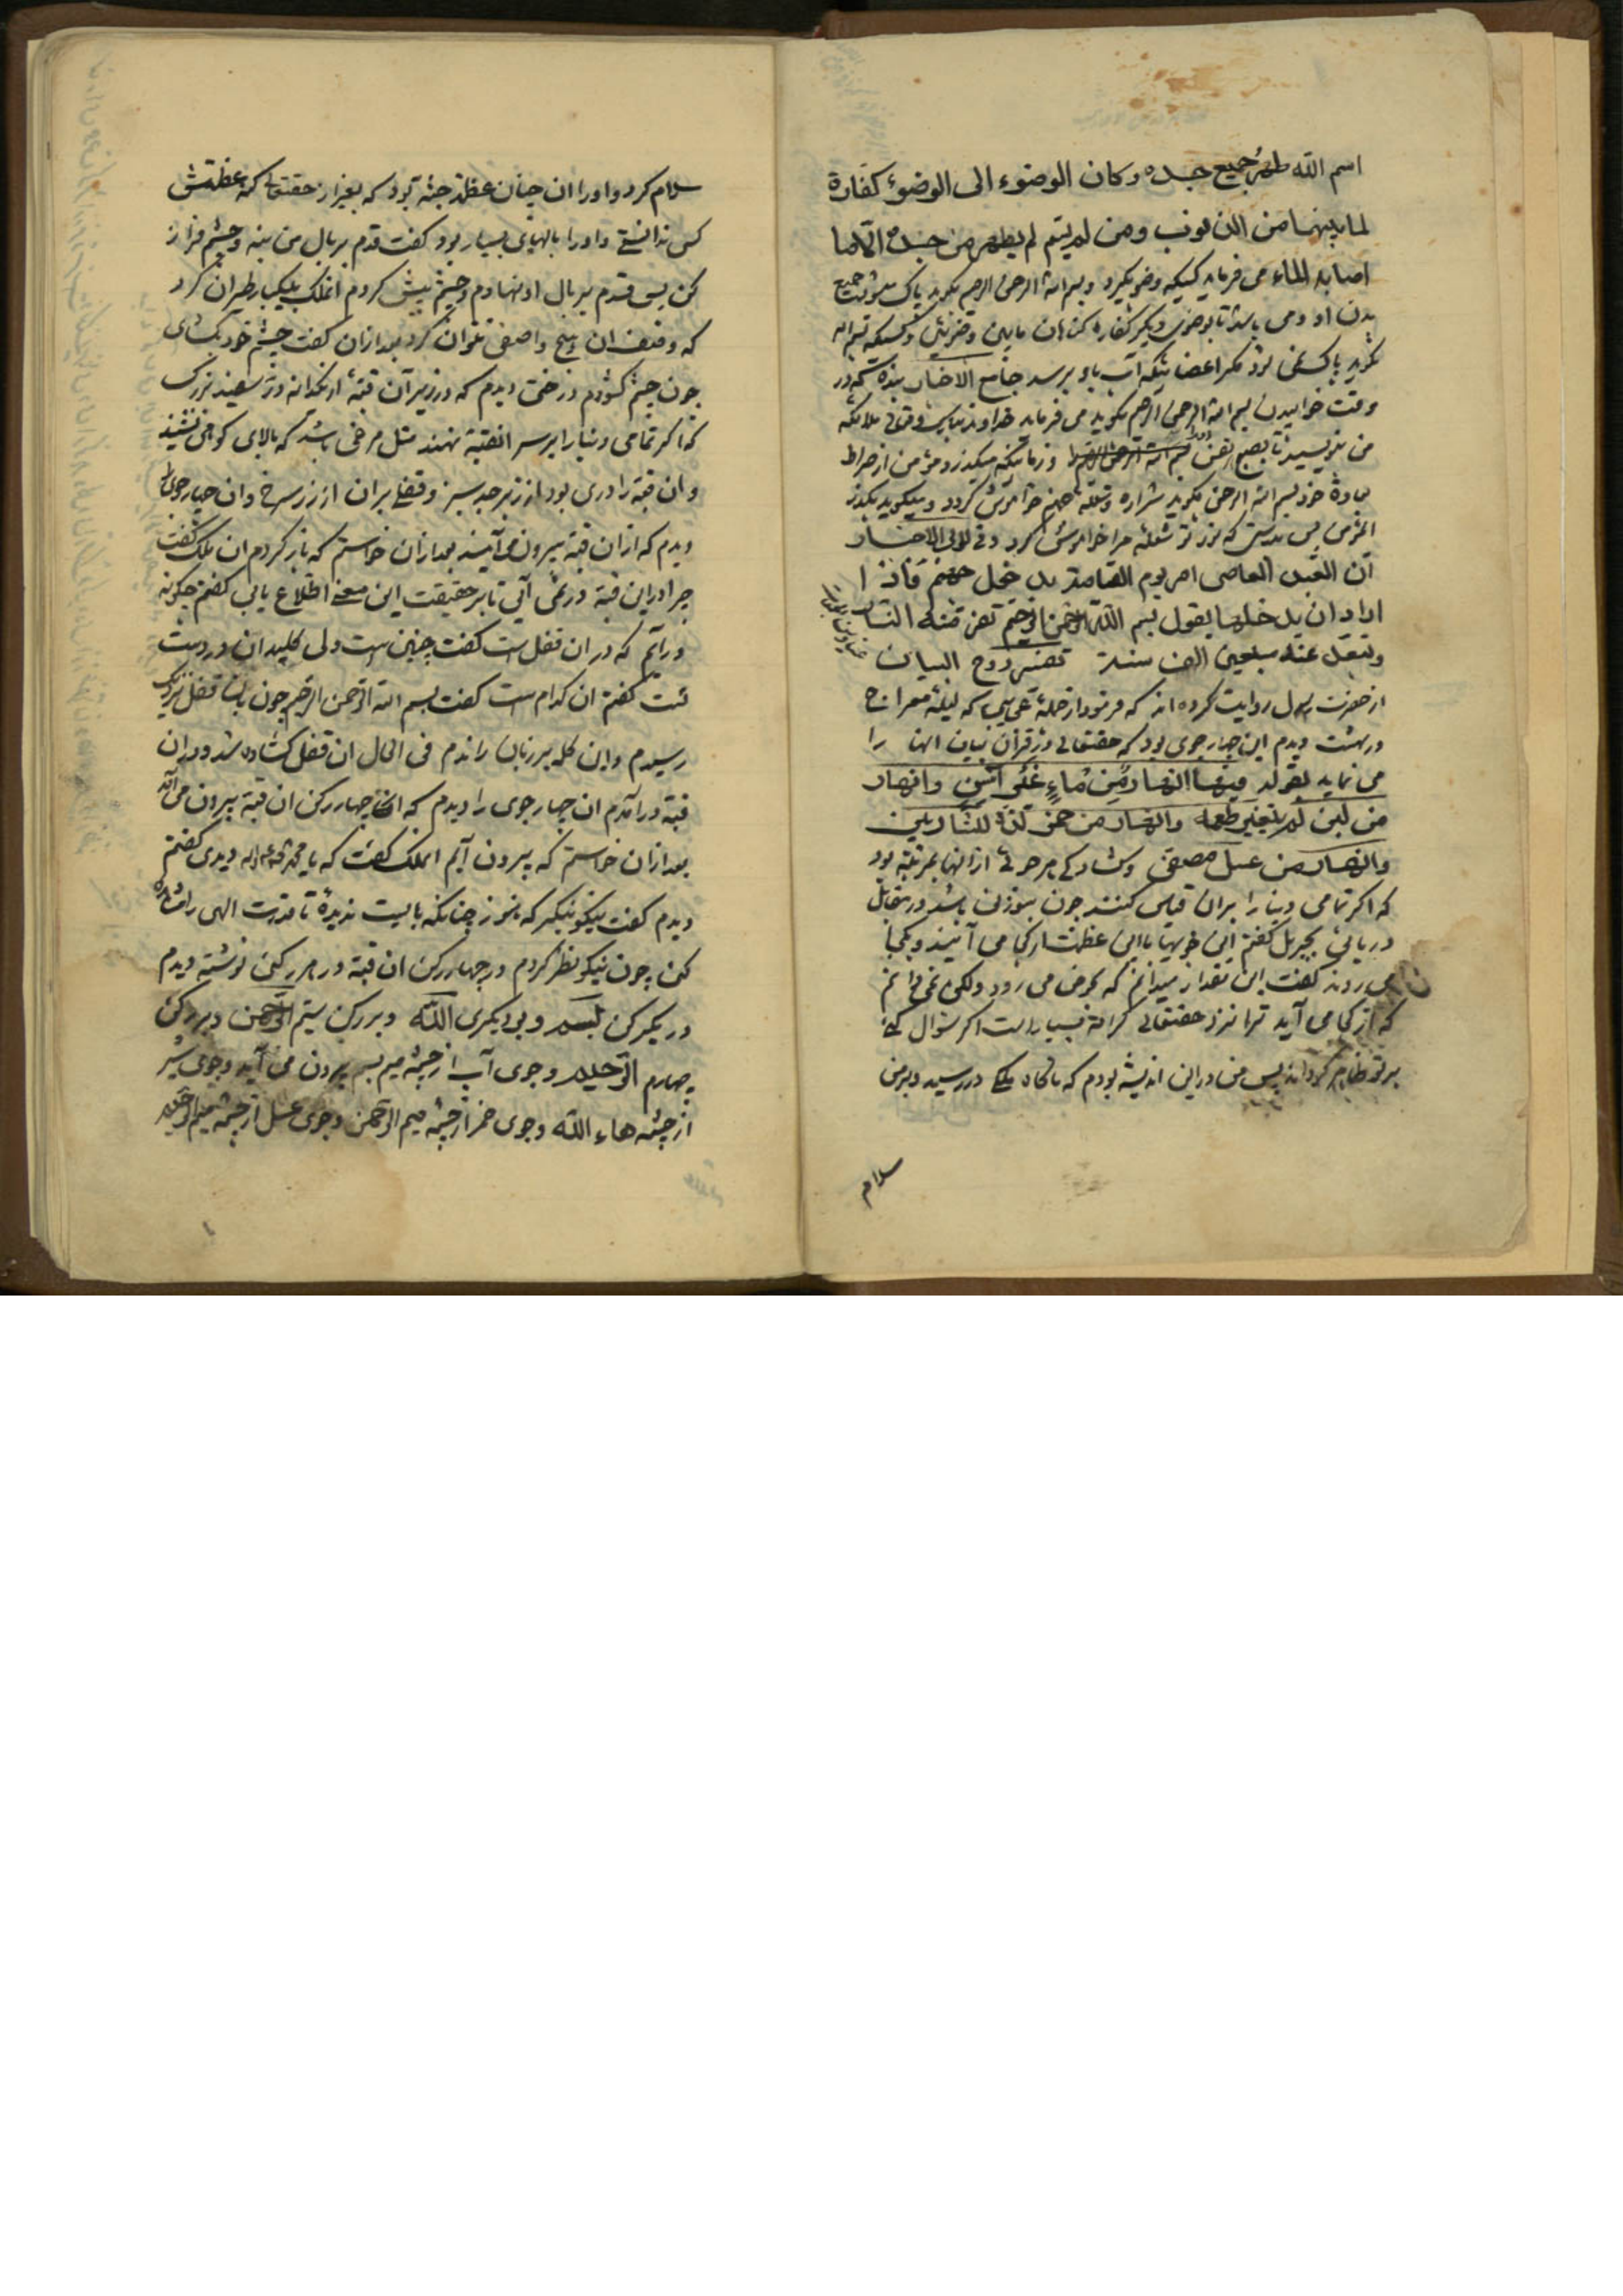 اسم الله طهر جميع جسده وكان الوضوء الى الوضوء كفارة
لما بينهما من الذنوب ومن لم يسم لم يطهر من جسده الا ما
اصابه الماء می فرماید کسیکه وضو بگیرد و بسم الله الرحمن الرحیم بگوید پاک میشود جمیع
بدن او و می باشد تا بوضوی دیگر کفاره گناهان مابین وضوئین و کسیکه بسم الله
نگوید پاک نمی شود مگر اعضائیکه آب باو برسد جامع الاخبار بنده که در
وقت خوابیدن بسم الله الرحمن الرحیم بگوید می فرماید خداوند تبارک وتعالی ملائکه
من بنویسید تا بصبح نفس او را و زمانیکه میگذرد مؤمن از صراط
بسم الله الرحمن بگوید شراره و شعله جهنم خاموش گردد و میگوید بگذر
المؤمن پس بدرستی که نور تو شعله مرا خاموش کرد وفی لئالی الاخبار
ان العبد العاصی امر یوم القیامة یدخل جهنم فاذا
اراد ان یدخلها یقول بسم الله الرحمن الرحیم تفر منه النار
وتبعد عنه سبعین الف سنة تفسیر روح البیان
از حضرت رسول روایت کرده اند که فرمود از جمله عجایب که لیلة معراج
در بهشت دیدم این چهار جوی بود که حقتعالی در قرآن بیان آنها را
می نماید بقوله فیها انهار من ماء غیر آسن وانهار
من لبن لم یتغیر طعمه وانهار من خمر لذة للشاربین
وانهار من عسل مصفی و گشادگی هر جوئی از آنها بمرتبه بود
که اگر تمامی دنیا را بران قیاس کنند چون سوزنی باشد در مقابل
دریائی بجبرئیل گفتم این جویها با این عظمت از کجا می آیند و بکجا
می روند گفت این مقدار میدانم که بحوض می رود ولکن نمی دانم
که از کجا می آید ترا نزد حقتعالی کرامة بسیار است اگر سئوال کنی
بر تو ظاهر گرداند پس من در این اندیشه بودم که ناگاه ملکی در رسید و بر من
سلام
سلام کرد و او را ان چنان عظمة جثه بود که بغیر از حقتعالی کنه عظمتش
کس ندانستی و او را بالهای بسیار بود گفت قدم بر بال من بنه و چشم فراز
کن پس قدم بر بال او نهادم و چشم پیش کردم انملک بیکبار طیران کرد
که وصف ان هیچ واصفی نتوان کرد بعد ازان گفت چشم خود بگشای
چون چشم گشودم درختی دیدم که در زیر آن قبه از یکدانه در سفید بزرگ
که اگر تمامی دنیا را بر سر انقبة نهند مثل مرغی باشد که بالای کوهی نشیند
و ان قبه را دری بود از زبرجد سبز و قفلی بران از زر سرخ و ان چهار جوی را
دیدم که ازان قبة بیرون می آیند بعد ازان خواستم که باز گردم ان ملک گفت
چرا در این قبة در نمی آئی تا بر حقیقت این معنی اطلاع یابی گفتم چگونه
در آیم که در ان قفل است گفت چنین است ولی کلید ان در دست
تست گفتم ان کدام است گفت بسم الله الرحمن الرحیم چون بان قفل نزدیک
رسیدم و این کلمه بر زبان راندم فی الحال ان قفل گشاده شد و در ان
قبة در آمدم ان چهار جوی را دیدم که از چهار رکن ان قبة بیرون می آید
بعد ازان خواستم که بیرون آیم انملک گفت که یا محمد دیدی گفتم
دیدم گفت نیکو بنگر که هنوز چنانکه بایست ندیدۀ تا قدرت الهی را مشاهده
کنی چون نیکو نظر کردم در چهار رکن ان قبة در هر رکنی نوشته دیدم
در یک رکن بسم و بر دیگری الله و بر رکن سیم الرحمن و بر رکن
چهارم الرحیم و جوی آب از چشمه میم بسم بیرون می آید و جوی شیر
از چشمه هاء الله و جوی خمر از چشمه میم الرحمن و جوی عسل از چشمه میم الرحیم